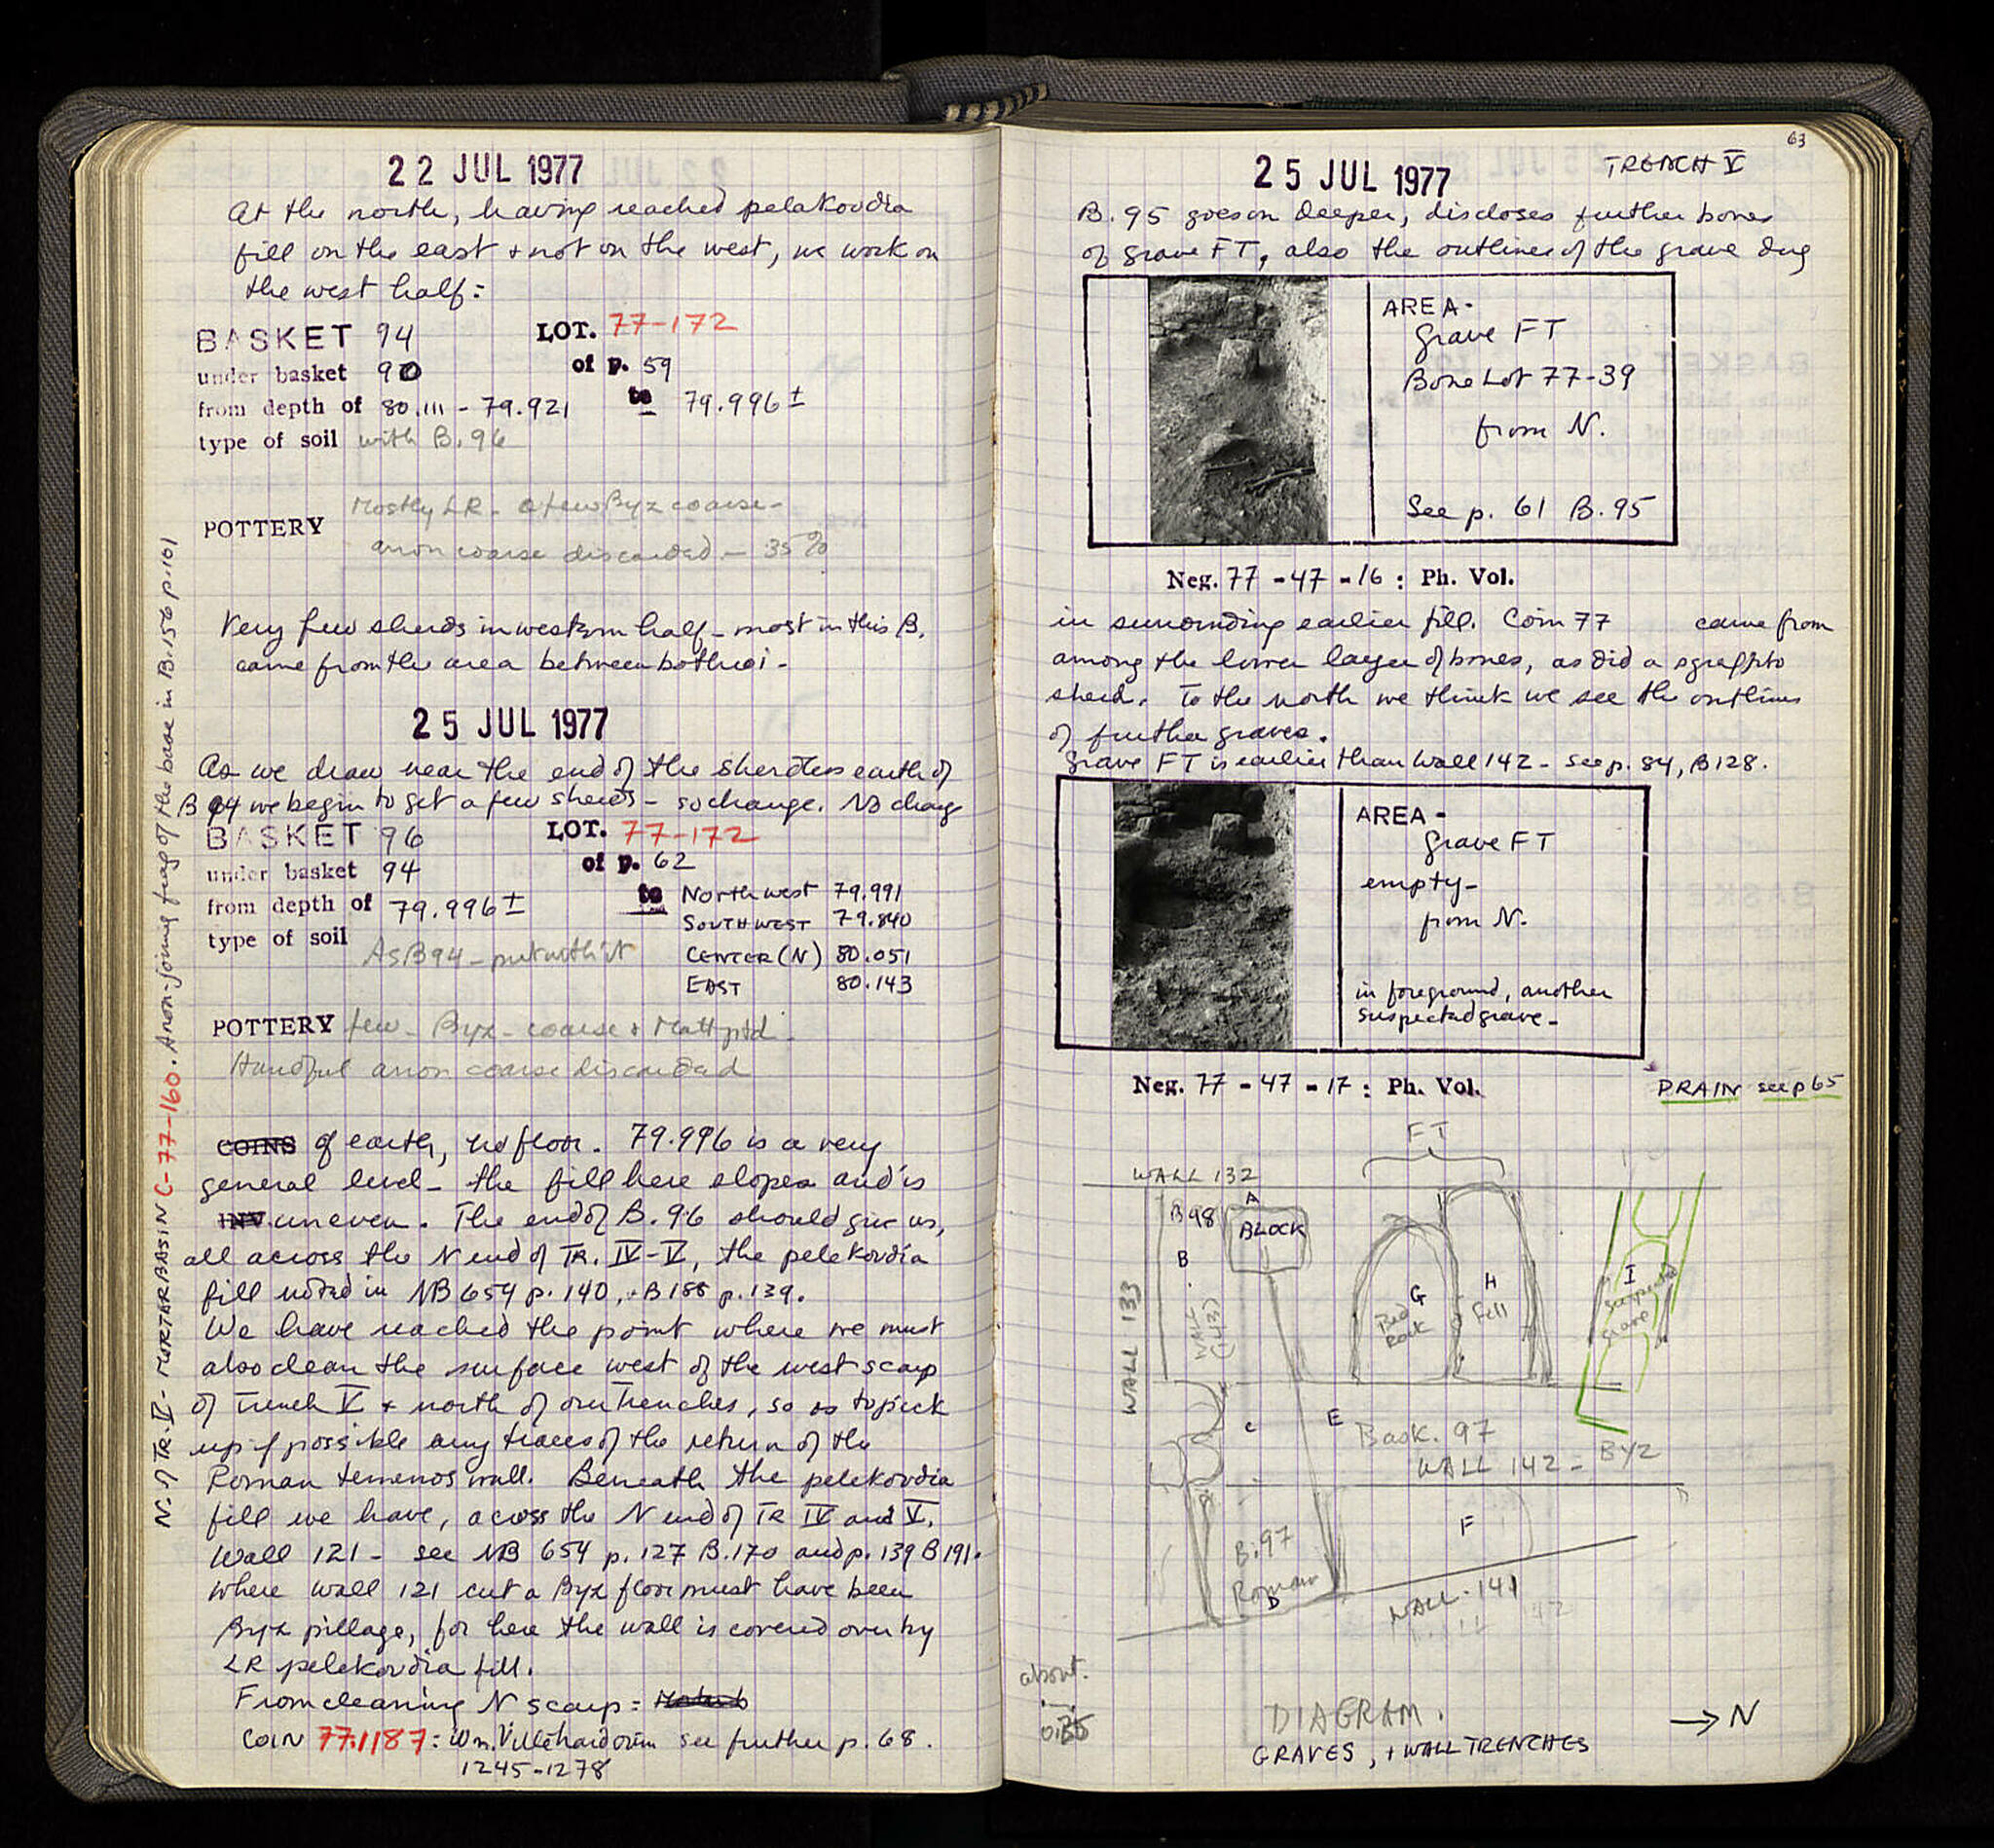 22 JUL 1977
At the north, having reached pelakoudia
fill on the east + not on the west, we work on
the west half:
BASKET 94 LOT. 77-172
under basket 90 of p. 59
from depth of 80.111 - 79.921 to 79.996±
type of soil with B.96
POTTERY Mostly LR - a few Byz coarse -
anon coarse discarded - 35%
Very few sherds in western half - most in this B.
came from the area between bothroi -
25 JUL 1977
As we draw near the end of the sherdless earth of
B 94 we begin to get a few sherds - so change. No change
BASKET 96 LOT. 77-172
under basket 94 of p. 62
from depth of 79.996± to North west 79.991
SOUTHWEST 79.840
CENTER (N) 80.051
EAST 80.143
type of soil As B94 - put with it
POTTERY few - Byz - coarse + Matt ptd.
Handful anon coarse discarded
COINS of earth, no floor. 79.996 is a very
general level - the fill here slopes and is
INV. uneven. The end of B.96 should give us,
all across the N end of TR. IV-V, the pelekoudia
fill noted in NB 654 p. 140, + B188 p. 139.
We have reached the point where we must
also clean the surface west of the west scarp
of Trench V + north of our Trenches, so as to pick
up if possible any traces of the return of the
Roman temenos wall. Beneath the pelekoudia
fill we have, across the N end of TR IV and V,
Wall 121 - see NB 654 p. 127 B.170 and p. 139 B191.
Where wall 121 cut a Byz floor must have been
Byz pillage, for here the wall is covered over by
LR pelekoudia fill.
From cleaning N scarp:
COIN 77.1187: Wm. Villehardouin see further p. 68.
1245-1278
N. of TR. V - MORTAR BASIN C-77-160. A non-joining frag of the base in B.156 p.101
63
25 JUL 1977 TRENCH V
B. 95 goes on deeper, discloses further bones
of grave FT, also the outlines of the grave dug
AREA -
Grave FT
Bone Lot 77-39
from N.
See p. 61 B.95
Neg. 77 - 47 - 16 : Ph. Vol.
in surrounding earlier fill. Coin 77 came from
among the lower layer of bones, as did a sgraffito
sherd. To the north we think we see the outlines
of further graves.
Grave FT is earlier than Wall 142 - see p. 84, B128.
AREA -
Grave FT
empty -
from N.
in foreground, another
suspected grave -
Neg. 77 - 47 - 17 : Ph. Vol.
DRAIN see p 65
FT
WALL 132
B98
A
BLOCK
B
WALL 133
WALL (143)
G
Bed
Rock
H
Fill
I
suspected
grave
C
E
Bask. 97
WALL 142 - BYZ
F
B.97
Roman
D
WALL 141
about
DIAGRAM.
GRAVES, + WALL TRENCHES
→ N